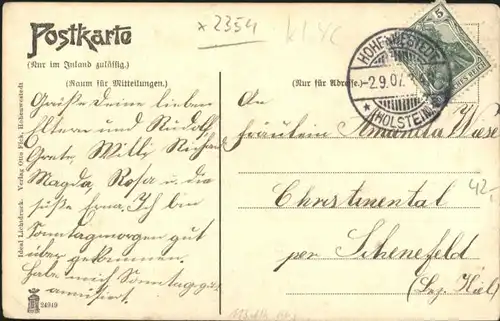 Postkarte
* 2354
(Nur im Inland zulässig.)
(Raum für Mitteilungen.)
(Nur für Adresse.)
HOHENWESTEDT
-2.9.07.
* (HOLSTEIN)
5
DEUTSCHES REICH
Grüße Deine lieben
Eltern und Rudolf,
Grete, Willi, Richard
Magda, Rosa u. die
süße Erna. Ich bin
Sonntagmorgen gut
über gekommen.
Habe mich Sonntag gut
amüsiert.
An
Fräulein Amanda Wiese
Christinental
per Schenefeld
(Bez. Kiel)
42.
Ideal Lichtdruck. Verlag Otto Fick, Hohenwestedt
24949